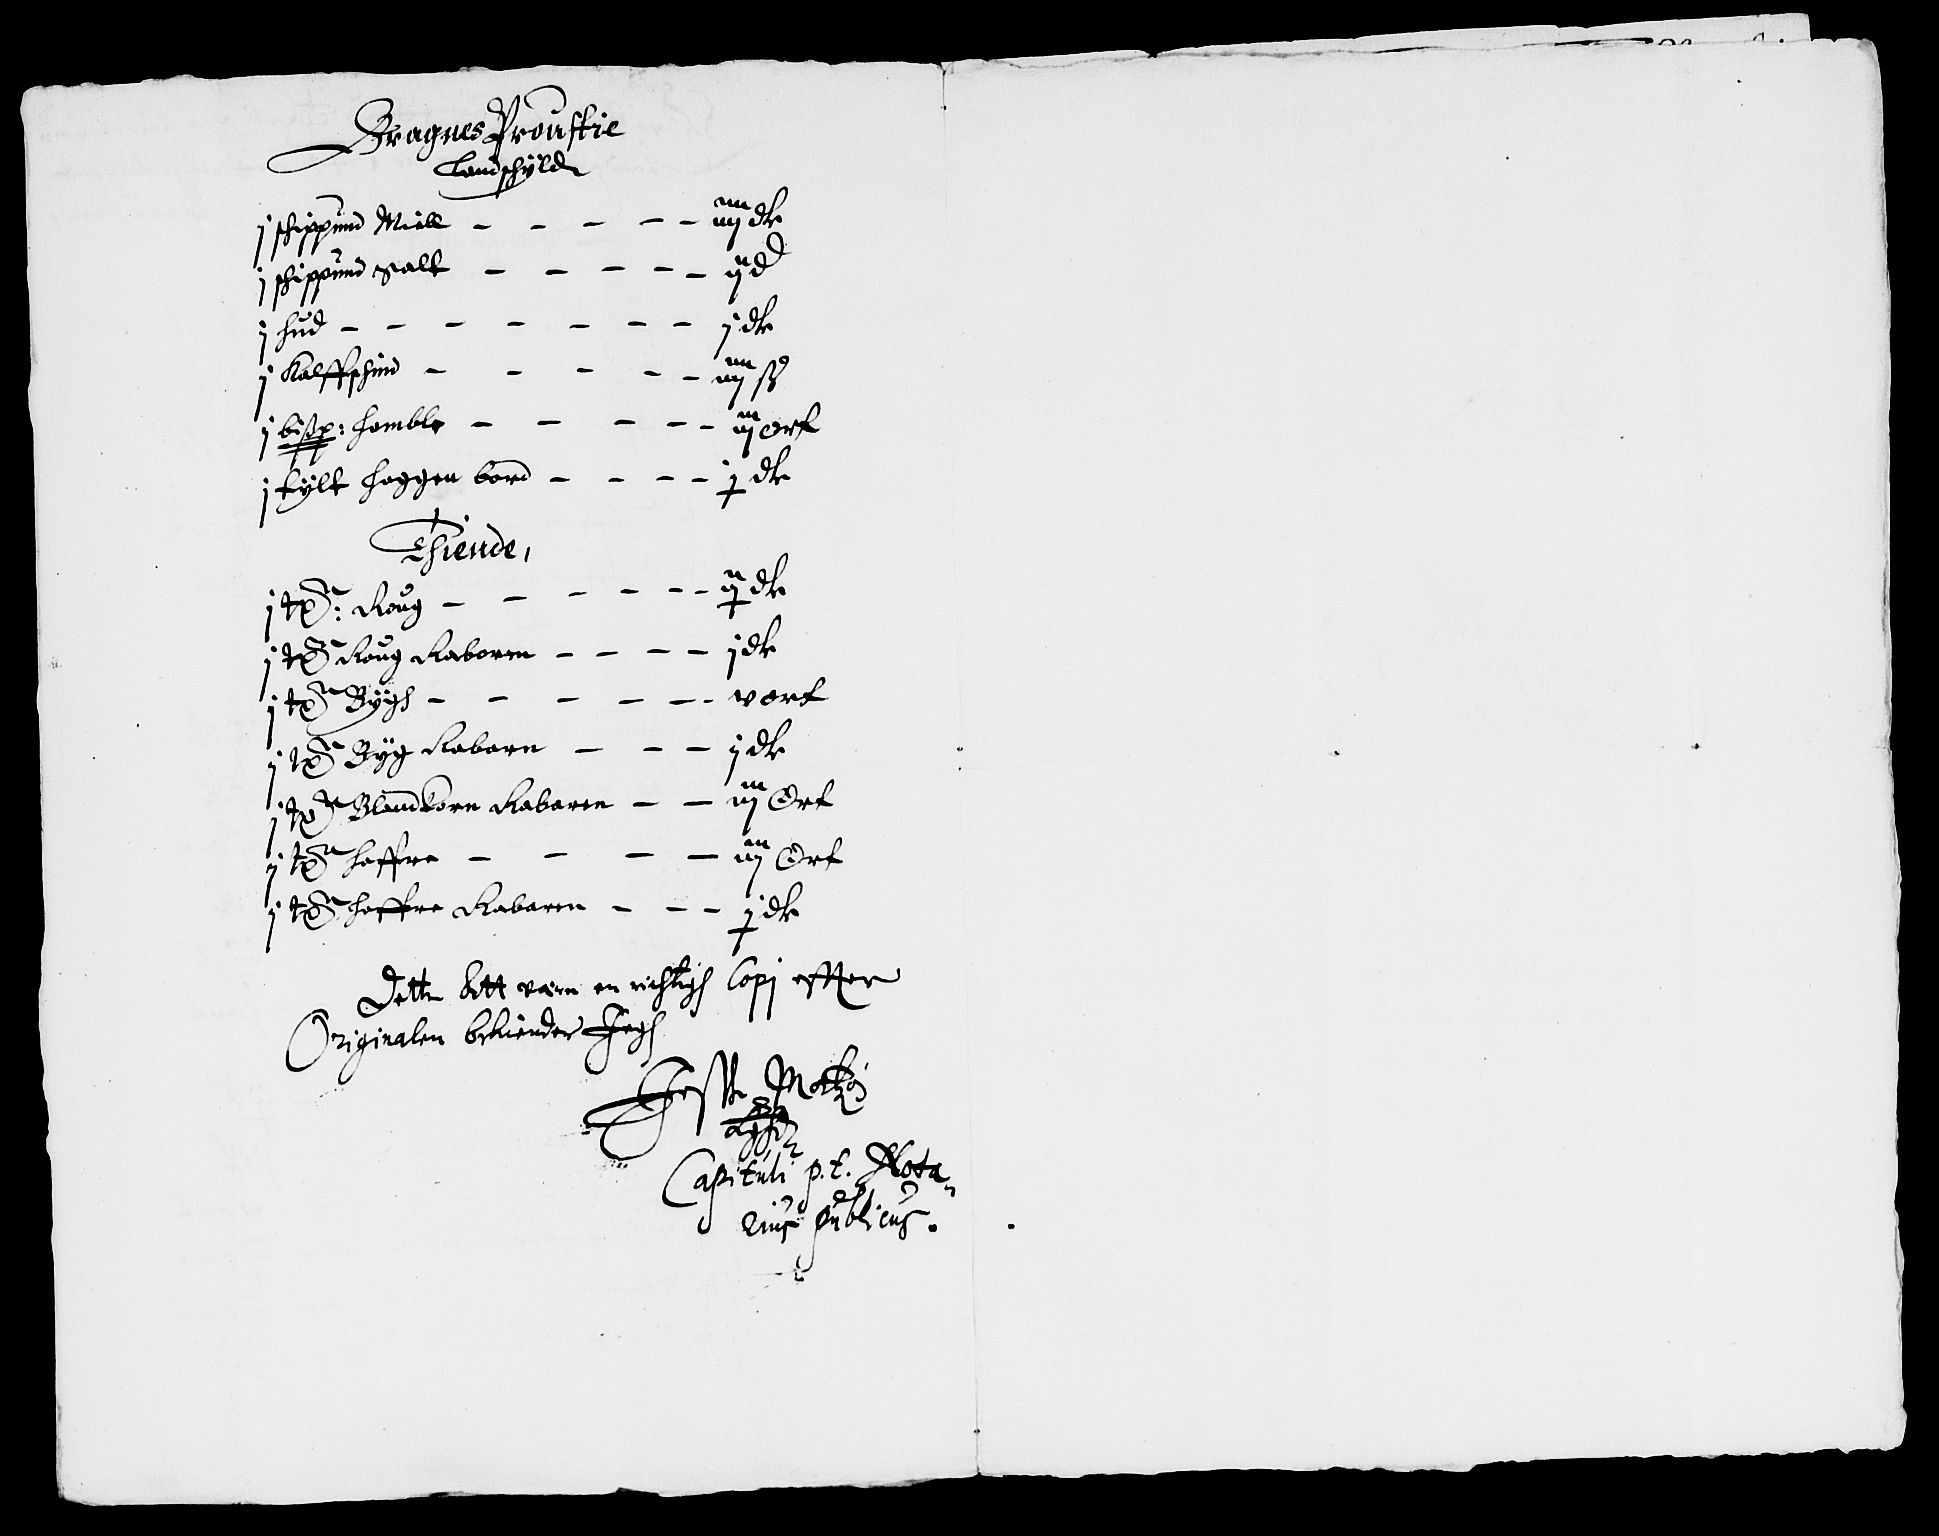 Bragnes Proustie
Landschyld
j schippund Miell – – – – – iiij dlr
j schippund Salt – – – – – ij d
j hud – – – – – – – j dlr
j Kalffschind – – – – – iiij ß
j bißp: homble – – – – – iij ort
j tylt hoggen bord – – – – j dlr
Thiende,
j tøn: Roug – – – – – – ij dlr
j tøn Roug Raboren – – – – j dlr
j tøn Bygh – – – – – – v ort
j tøn Byg Raboren – – – j dlr
j tøn Blandkorn Raboren – – iij Ort
j tøn haffre – – – – iij Ort
j tøn haffre Raboren – – – j dlr
Dette hett være en richtigh Copj effter
Originalen bekiender Jegh
Capituli p.t. Nota-
rius publicus.